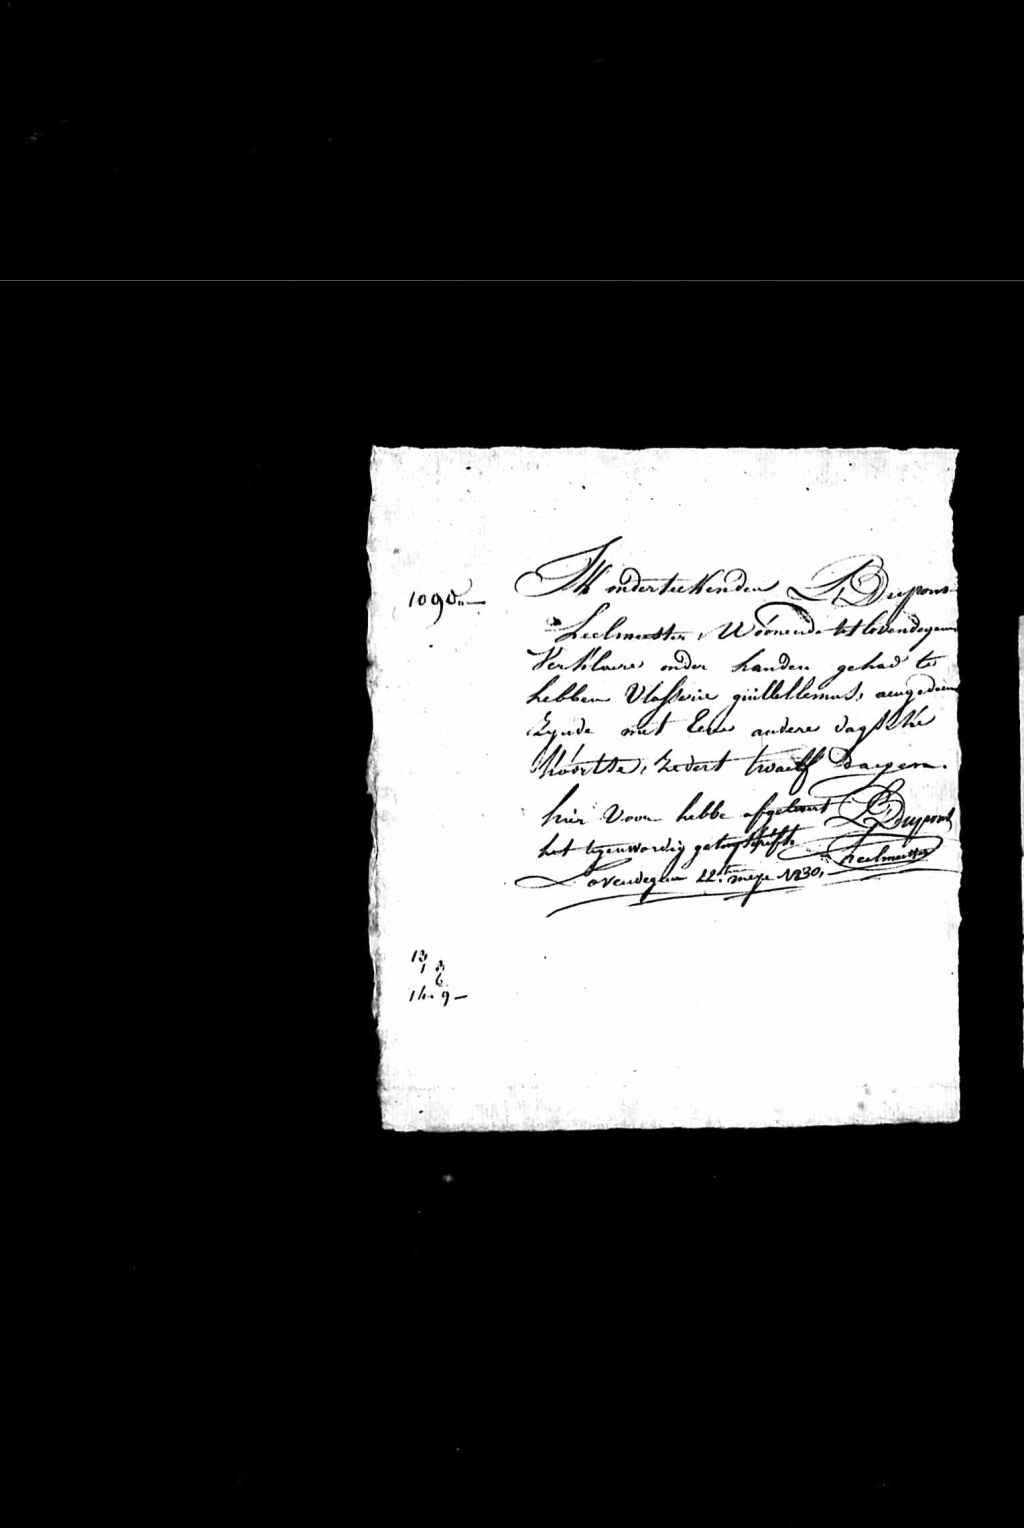 1090
Ik onderteekenden L. Dupont
heelmeester, Wóónende tot lovendegem
Verklaere onder handen gehad te
hebben Vlassein guillellemus, aengedaen
Zynde met Eene andere dagsche
kóórtse, Zedert twaelf Daegen.
hier Voor hebbe afgelevert L. Dupont
het tegenwordig getuyschrift. heelmeester
Lovendegem 22ten meye 1830,
13
1 3
6
14. 9 —